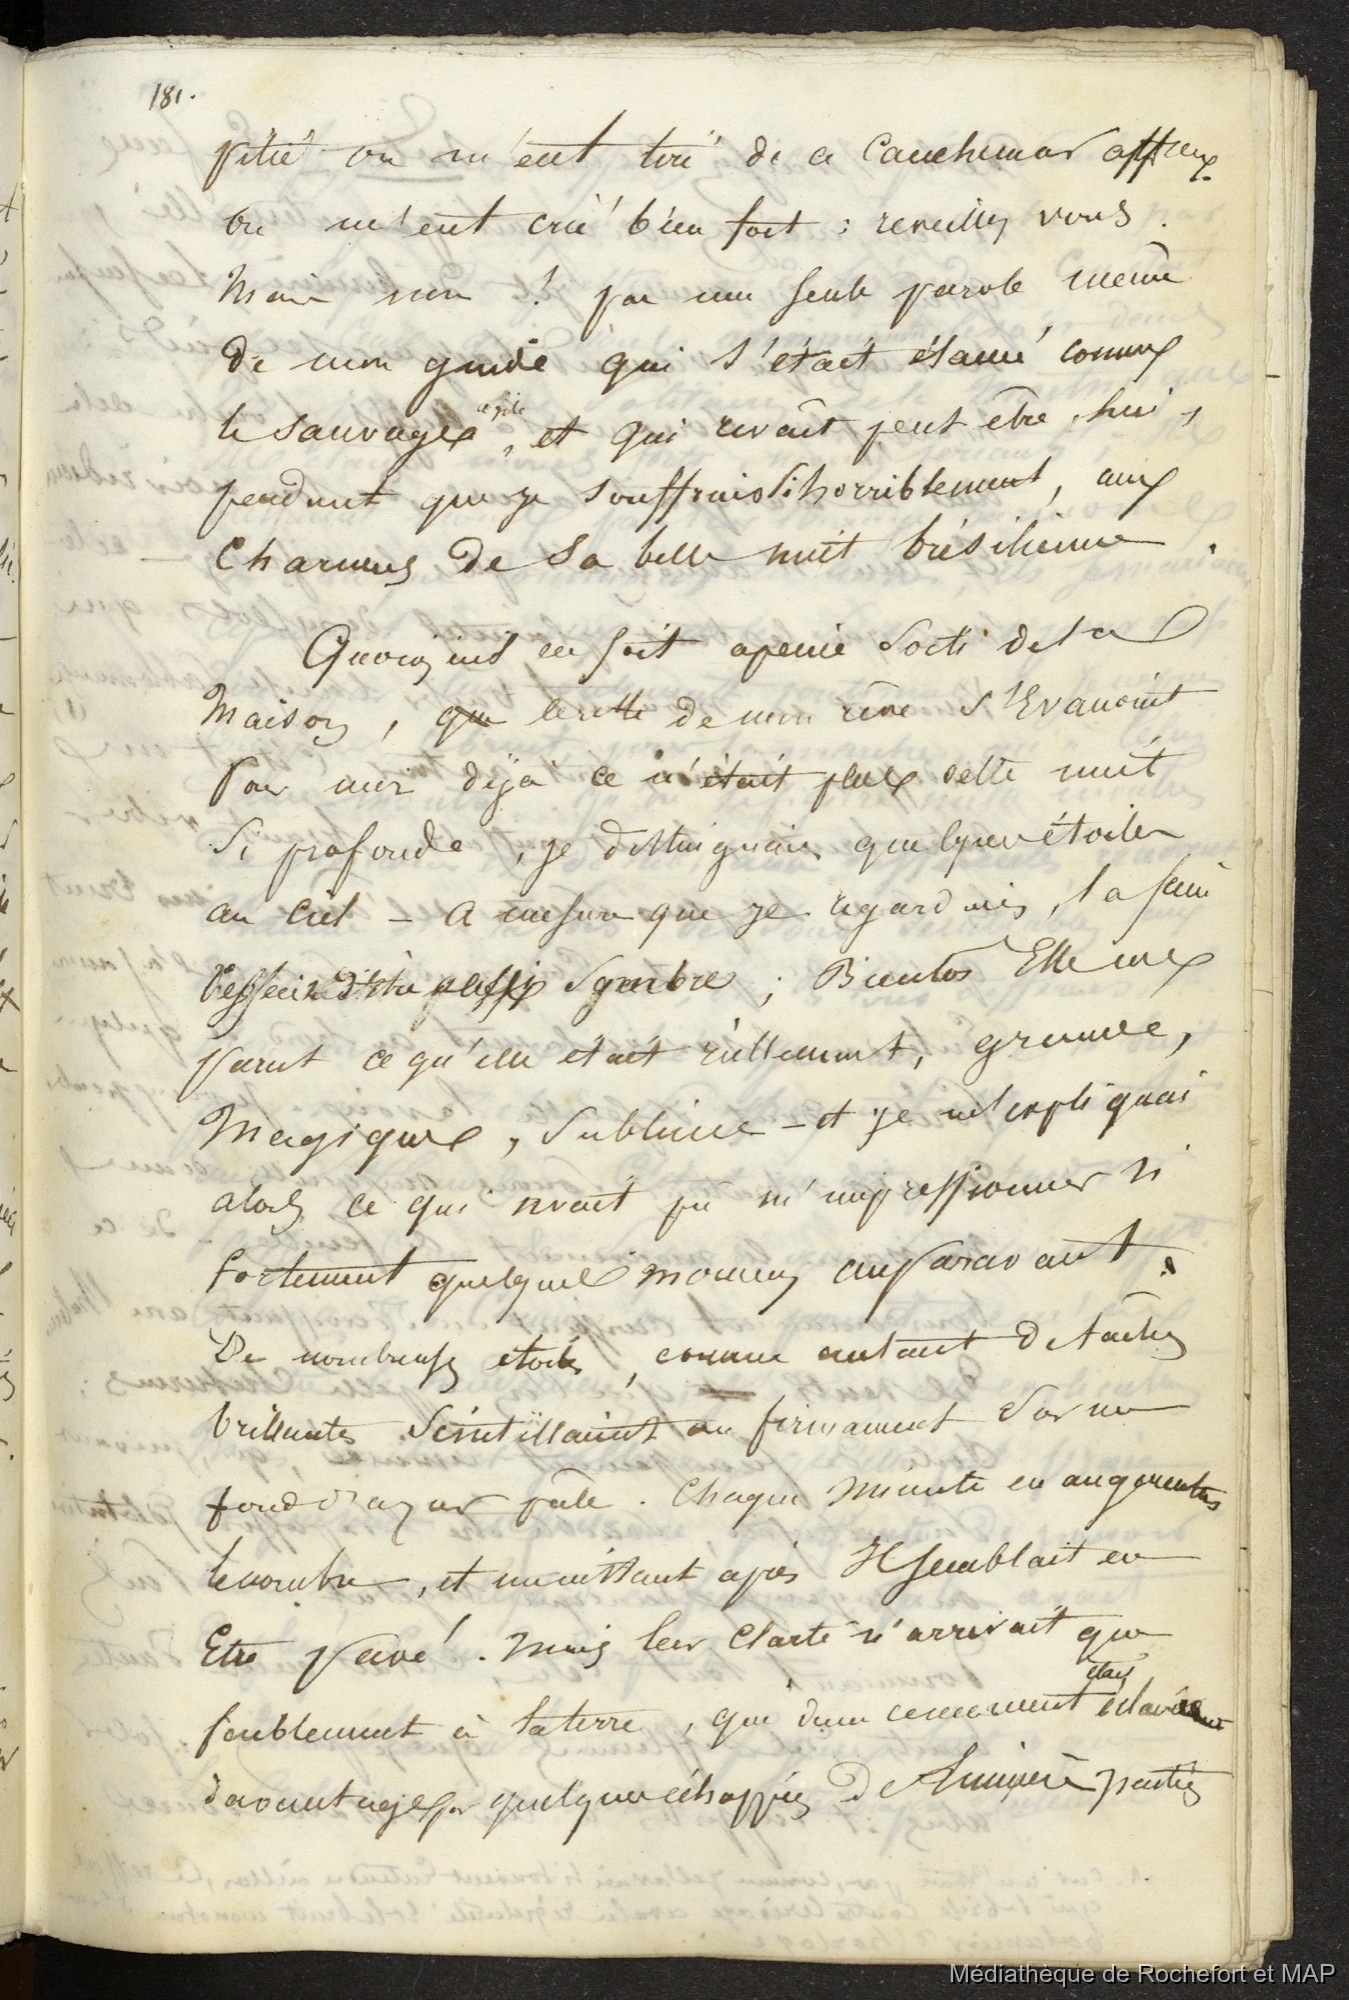 181.
pitié on m'eut tiré de ce cauchemar affreux
on m'eut crié bien fort : reveillez vous.
Mais non ! pas une seule parole même
de mon guide qui s'était étamé comme
le sauvage, et qui revait peut être, lui,
pendant que je souffrais si horriblement, aux
Charmes de sa belle nuit brésilienne.
Quoiqu'il en soit apeine sorti de la
Maison, que le reste de mon rêve s'Evanouit
Pour moi déja ce n'était plus cette nuit
Si profonde, je distinguais quelques étoiles
au Ciel - A mesure que je regardais, la
sombre ; Bientot Elle me
parut ce qu'elle était réellement, grande,
Magique, Sublime - et je m'expliquai
alors ce qui avait pu m'impressionner si
fortement quelques momens auparavant.
De nombreuses étoiles, comme autant de tâches
brillantes scintillaient au firmament sur un
fond d'azur pâle. Chaque minute en augmentait
le nombre, et un instant après Il semblait en
Etre pavé. Mais leur Clarté n'arrivait que
faiblement à la terre, qui dans ce moment était éclairée
davantage par quelques échappées de lumière parties
Médiathèque de Rochefort et MAP